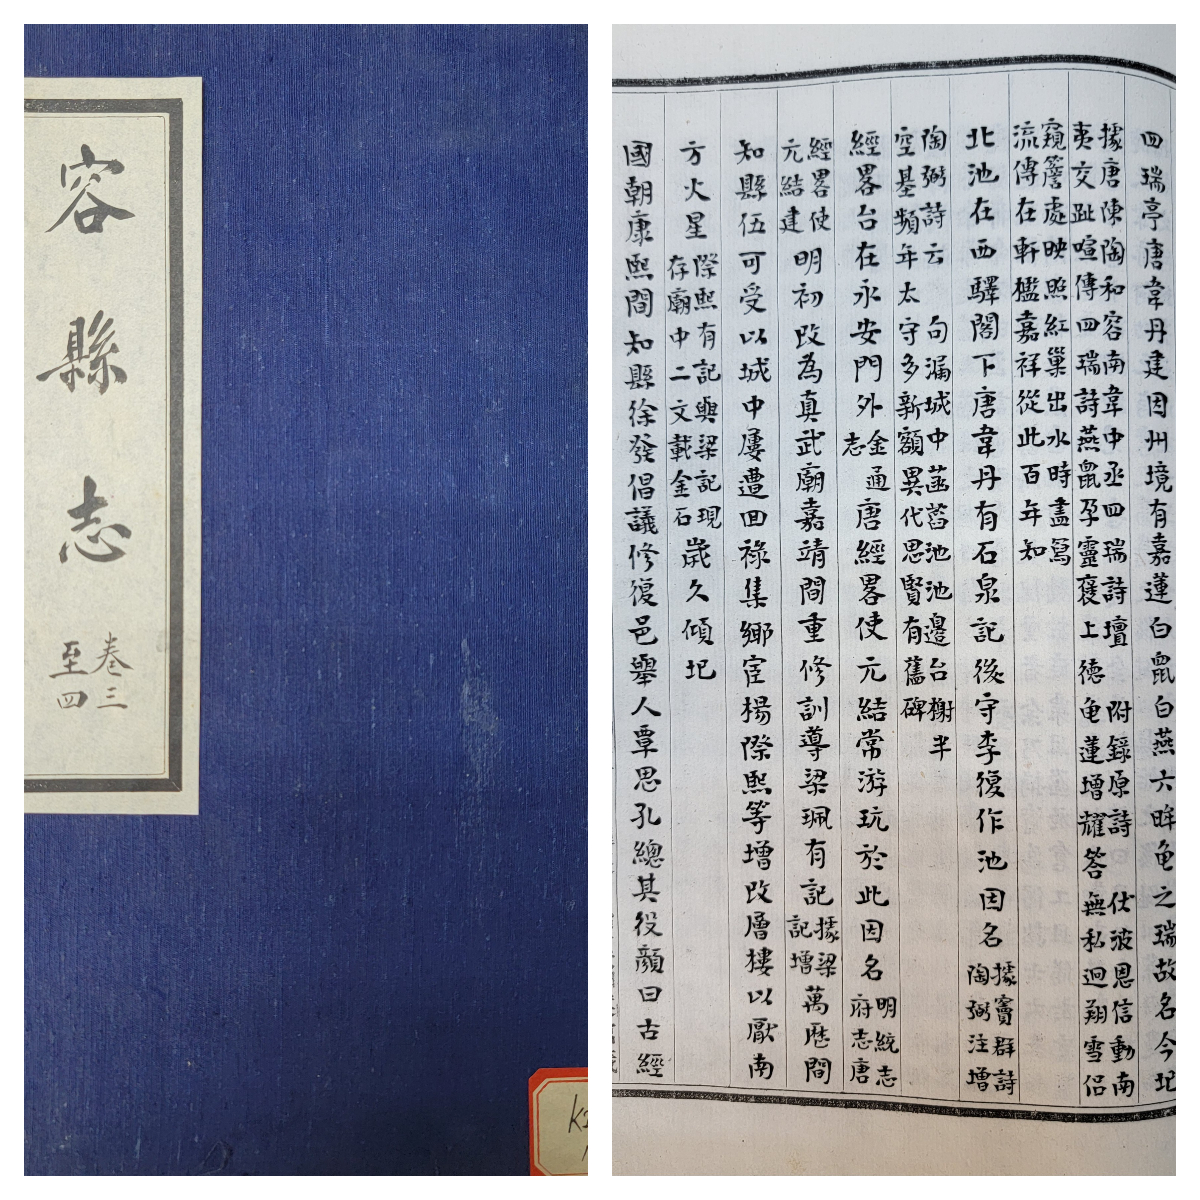 容縣志
卷三
至四
K
四瑞亭唐韋丹建因州境有嘉蓮白鼠白燕六眸龟之瑞故名今圯
據唐陳陶和容南韋中丞四瑞詩壇 附錄原詩 伏波恩信動南
夷交趾喧傳四瑞詩燕鼠孕靈褒上德龟蓮增耀答無私迥翔雪侶
窺簷處映照紅巢出水時盡寫
流傳在軒檻嘉祥從此百年知
北池在西驛閣下唐韋丹有石泉記後守李復作池因名 據竇群詩 陶弼注增
陶弼詩云 句漏城中菡萏池池邊台榭半
空基頻年太守多新額異代思賢有舊碑
經畧台在永安門外 金通 志 唐經畧使元結常游玩於此因名 明統志 府志唐
經畧使 元結建 明初改為真武廟嘉靖間重修訓導梁珮有記 據梁 記增 萬歷間
知縣伍可受以城中屢遭回祿集鄉宦楊際熙等增改層樓以厭南
方火星 際熙有記與梁記現 存廟中二文載金石 歲久傾圯
國朝康熙間知縣徐發倡議修復邑舉人覃思孔總其役顏曰古經